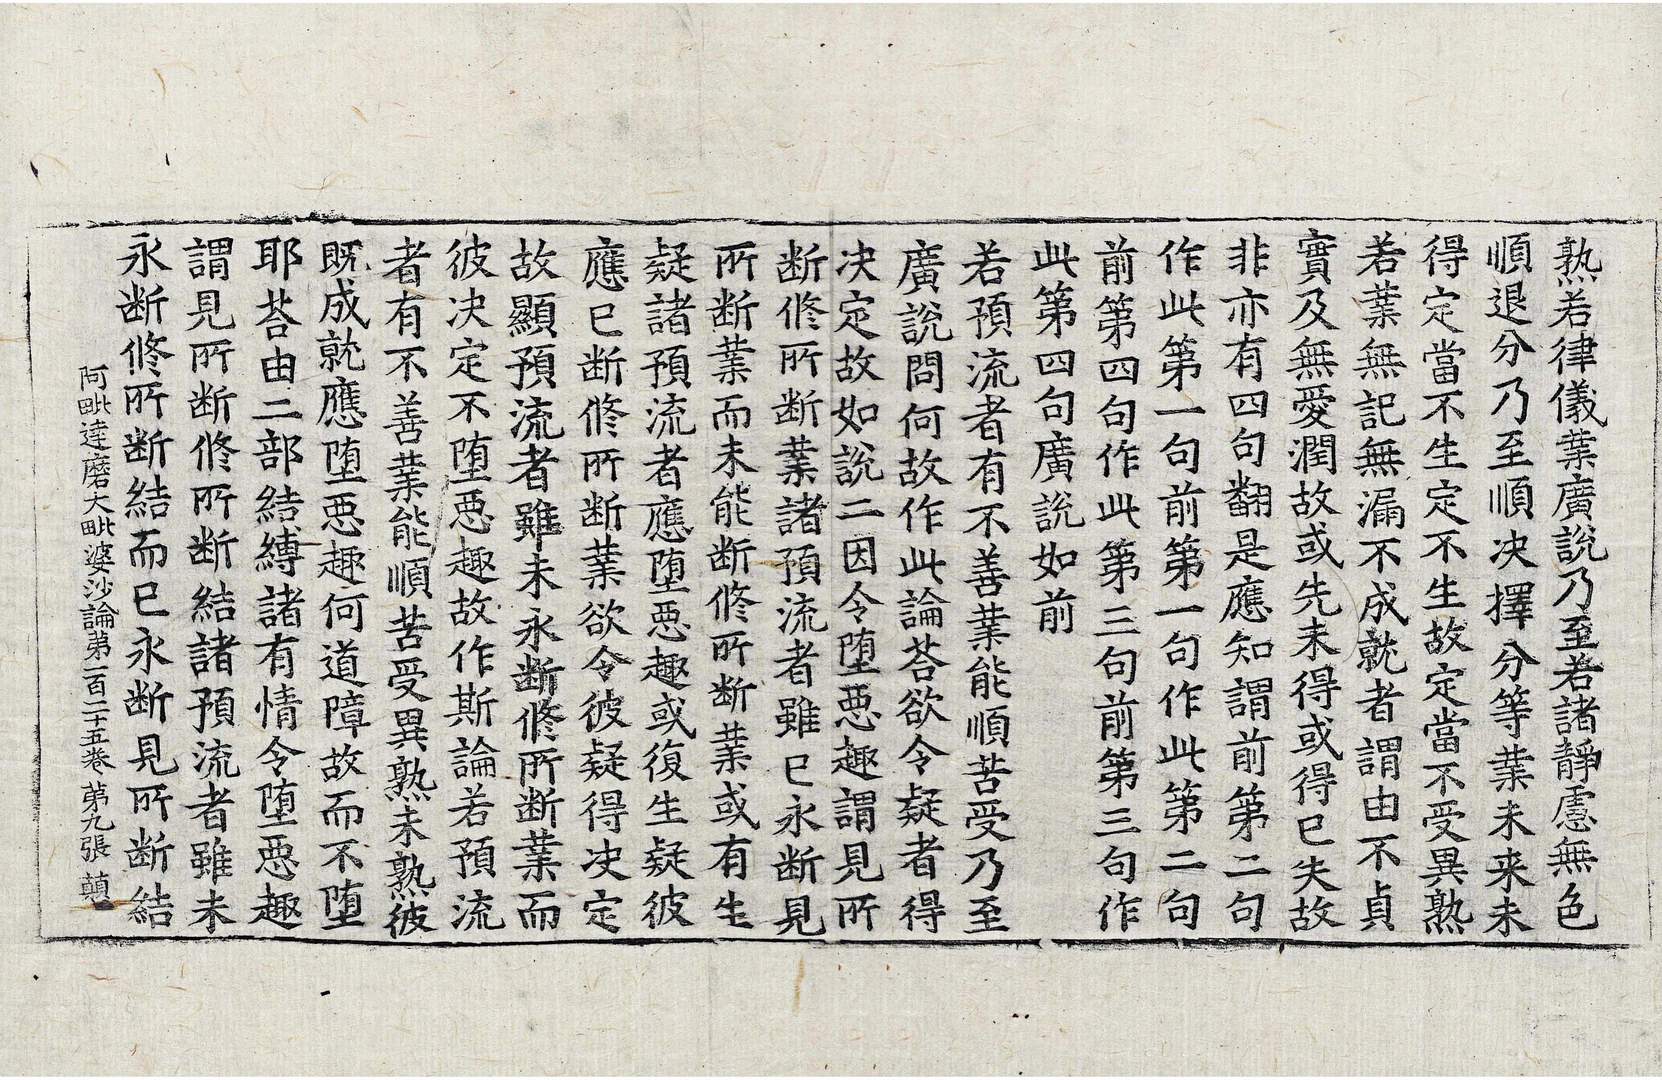 熟若律儀業廣說乃至若諸靜慮無色
順退分乃至順決擇分等業未来未
得定當不生定不生故定當不受異熟
若業無記無漏不成就者謂由不貞
實及無愛潤故或先未得或得已失故
非亦有四句翻是應知謂前第二句
作此第一句前第一句作此第二句
前第四句作此第三句前第三句作
此第四句廣說如前
若預流者有不善業能順苦受乃至
廣說問何故作此論荅欲令疑者得
决定故如說二因令墮惡趣謂見所
断修所断業諸預流者雖已永断見
所断業而未能断修所断業或有生
疑諸預流者應墮惡趣或復生疑彼
應已断修所断業欲令彼疑得决定
故顯預流者雖未永断修所断業而
彼决定不墮惡趣故作斯論若預流
者有不善業能順苦受異熟未熟彼
旣成就應墮惡趣何道障故而不墮
耶荅由二部結縛諸有情令墮惡趣
謂見所断修所断結諸預流者雖未
永断修所断結而已永断見所断結
阿毗達磨大毗婆沙論第一百二十五卷 第九張 顛